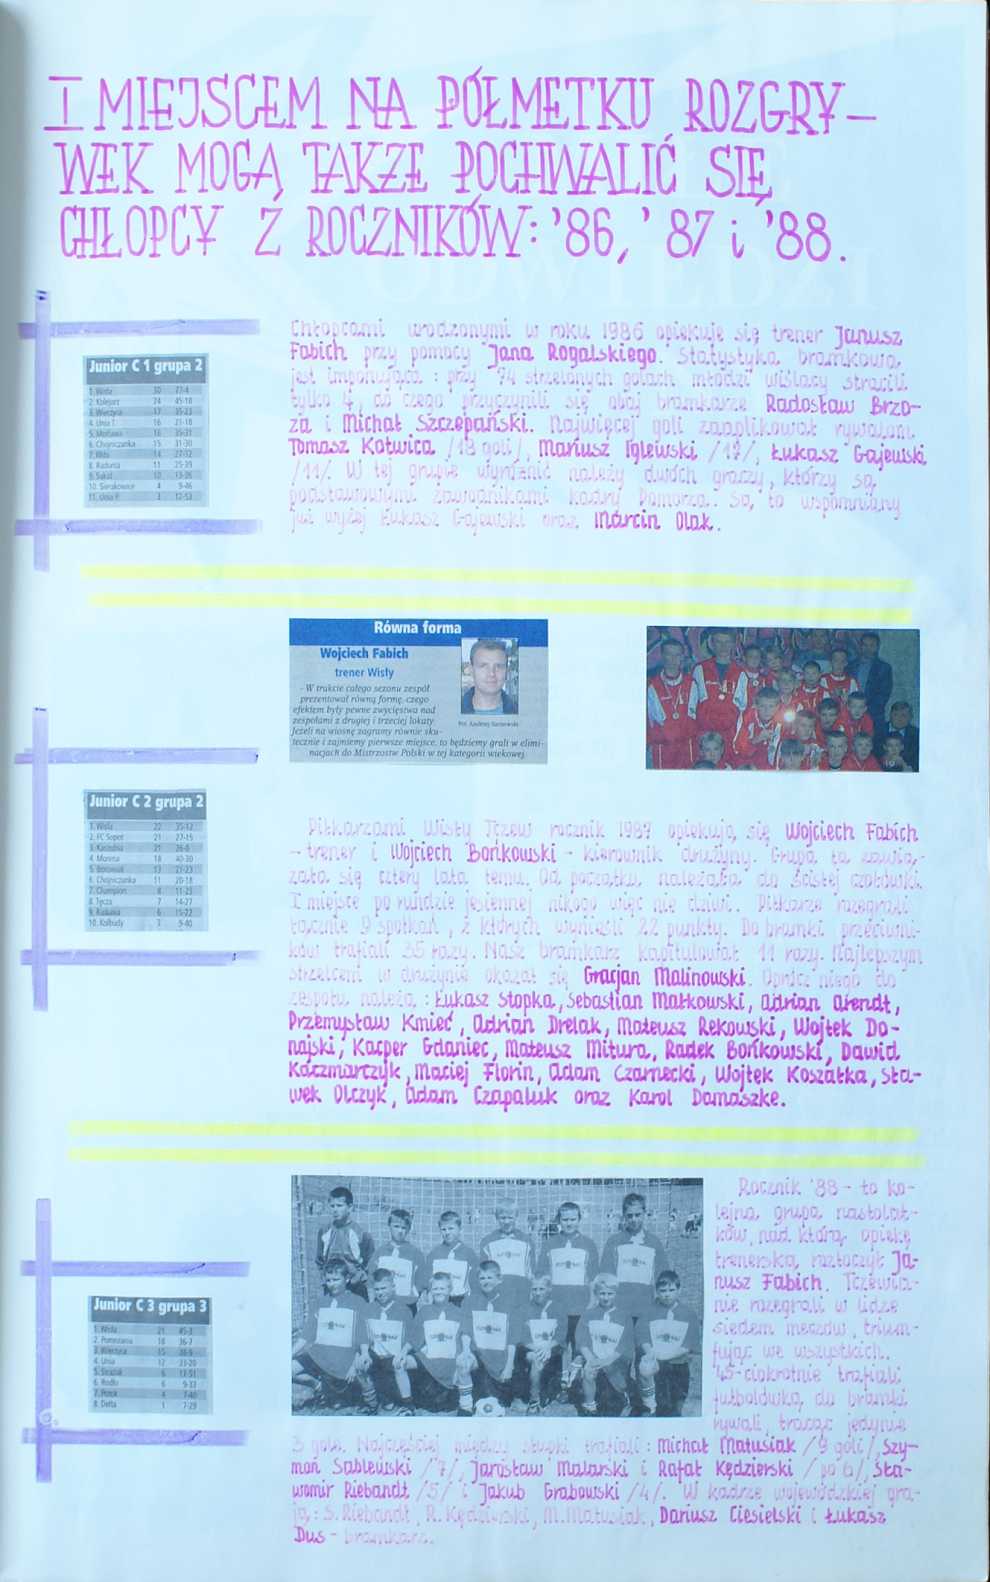 I MIEJSCEM NA PÓŁMETKU ROZGRY-
WEK MOGĄ TAKŻE POCHWALIĆ SIĘ
CHŁOPCY Z ROCZNIKÓW: '86, '87 i '88.
Chłopcami urodzonymi w roku 1986 opiekuje się trener Janusz
Fabich przy pomocy Jana Rogalskiego. Statystyka bramkowa
jest imponująca: przy 74 strzelonych golach młodzi wiślacy stracili
tylko 4, do czego przyczynili się obaj bramkarze Radosław Brzo-
za i Michał Szczepański. Najwięcej goli zaaplikował rywalom
Tomasz Kotwica /18 goli/, Mariusz Iglewski /17/, Łukasz Gajewski
/11/. W tej grupie wyróżnić należy dwóch graczy, którzy są
podstawowymi zawodnikami kadry Pomorza. Są to wspomniany
już wyżej Łukasz Gajewski oraz Marcin Olak.
Junior C 1 grupa 2
1. Wisła 30 77-4
2. Kolejarz 24 45-18
3. Wierzyca 17 35-23
4. Unia T. 16 21-18
5. Motława 16 35-31
6. Chojniczanka 15 31-30
7. 14 27-32
8. Radunia 11 25-39
9. Sokół 10 13-26
10. Sierakowice 4 9-46
11. Unia P. 3 12-53
Równa forma
Wojciech Fabich
trener Wisły
- W trakcie całego sezonu zespół
prezentował równą formę, czego
efektem były pewne zwycięstwa nad
zespołami z drugiej i trzeciej lokaty.
Jeżeli na wiosnę zagramy równie sku-
tecznie i zajmiemy pierwsze miejsce, to będziemy grali w elimi-
nacjach do Mistrzostw Polski w tej kategorii wiekowej.
Fot. Andrzej
Junior C 2 grupa 2
1. Wisła 22 35-12
2. FC Sopot 21 27-15
3. Kaszubia 21 26-8
4. Morena 18 40-30
5. 13 21-23
6. Chojniczanka 11 20-18
7. Champion 8 11-23
8. Tęcza 7 14-27
9. Radunia 6 15-22
10. Kolbudy 3 9-40
Piłkarzami Wisły Tczew rocznik 1987 opiekują się Wojciech Fabich
- trener i Wojciech Bońkowski - kierownik drużyny. Grupa ta zawią-
zała się cztery lata temu. Od początku należała do ścisłej czołówki.
I miejsce po rundzie jesiennej nikogo więc nie dziwi. Piłkarze rozegrali
łącznie 9 spotkań, z których wynieśli 22 punkty. Do bramki przeciwni-
ków trafiali 35 razy. Nasz bramkarz kapitulował 11 razy. Najlepszym
strzelcem w drużynie okazał się Gracjan Malinowski. Oprócz niego do
zespołu należą: Łukasz Stopka, Sebastian Małkowski, Adrian Arendt,
Przemysław Kmieć, Adrian Drelak, Mateusz Rekowski, Wojtek Do-
najski, Kacper Gdaniec, Mateusz Mitura, Radek Bońkowski, Dawid
Kaczmarczyk, Maciej Florin, Adam Czarnecki, Wojtek Koszałka, Sła-
wek Olczyk, Adam Czapaluk oraz Karol Damaszke.
Junior C 3 grupa 3
1. Wisła 21 45-3
2. Pomezania 18 36-7
3. Wierzyca 15 38-9
4. Unia 12 33-20
5. Strażak 6 13-51
6. Rodło 6 9-33
7. Potok 4 7-40
8. Delta 1 7-29
Rocznik '88 - to ko-
lejna grupa nastolat-
ków, nad którą opiekę
trenerską roztoczył Ja-
nusz Fabich. Tczewia-
nie rozegrali w lidze
siedem meczów, trium-
fując we wszystkich.
45-ciokrotnie trafiali
futbolówką do bramki
rywali, tracąc jedynie
3 gole. Najczęściej między słupki trafiali: Michał Matusiak /9 goli/, Szy-
mon Sablewski /7/, Jarosław Malarski i Rafał Kędzierski /po 6/, Sła-
womir Riebandt /5/ i Jakub Grabowski /4/. W kadrze wojewódzkiej gra-
ją: S. Riebandt, R. Kędzierski, M. Matusiak, Dariusz Ciesielski i Łukasz
Dus - bramkarz.